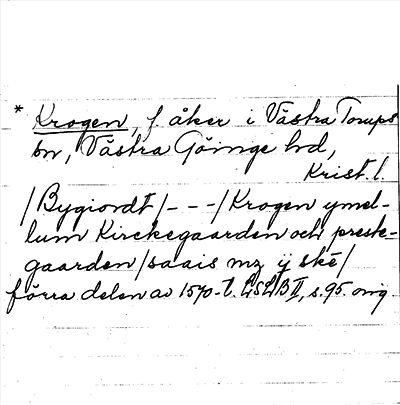 * Krogen, f. åker i Västra Torups
bn, Västra Göinge hd,
Krist. l.
/Bygiordt/---/Krogen ymel-
lum Kirckegaarden och preste-
gaarden/saais mz ij skē/
förra delen av 1570-t. LSLB II, s. 95. orig.